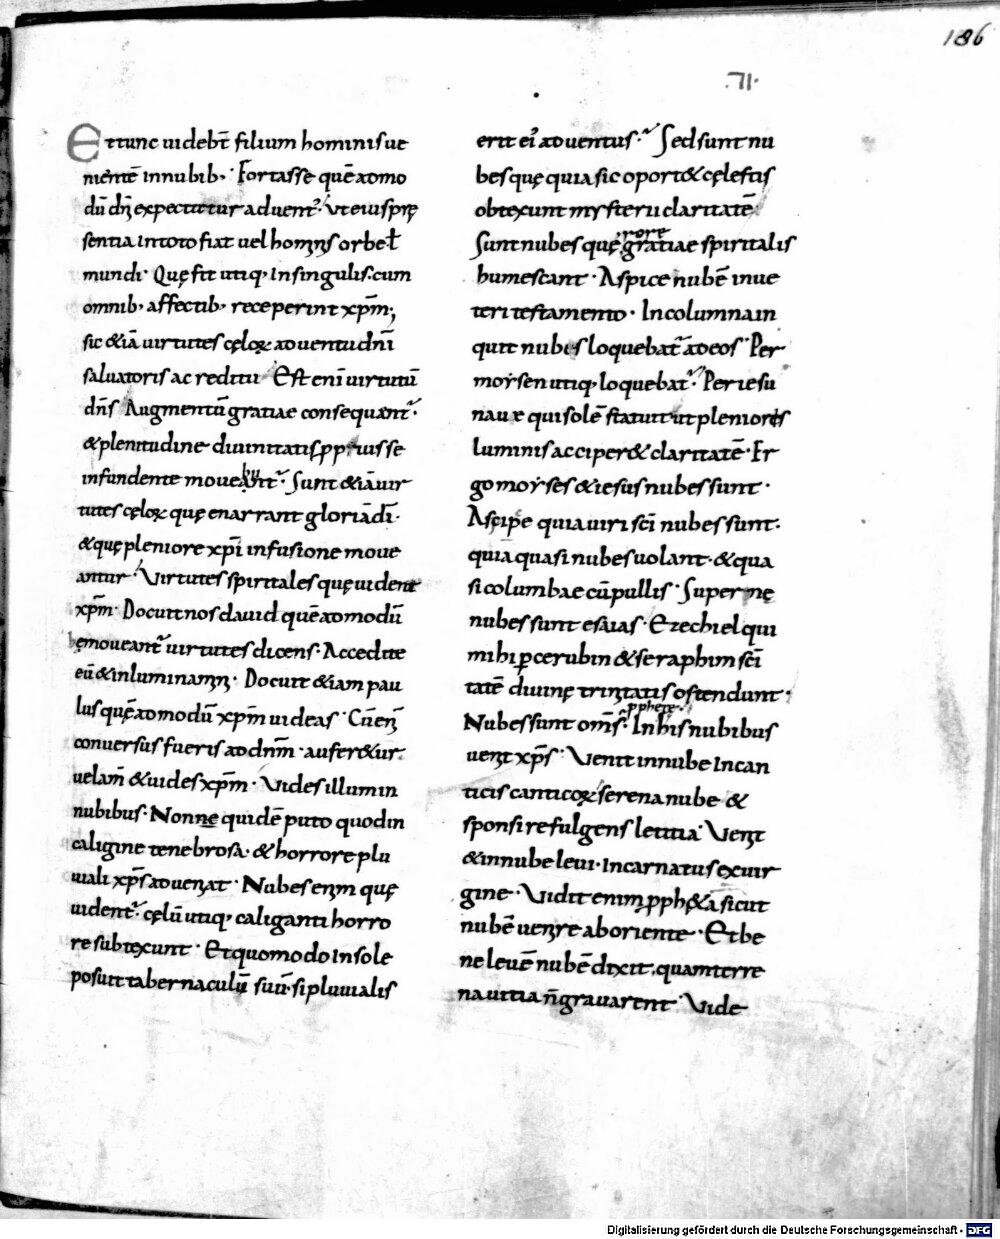 186
·VI·
Et tunc uidebt̄ filium hominis ue
nientē innubib; · Fortasse quēadmo
dū dn̄i expectatur aduent᾽. Vt eius prę
sentia intoto fiat uel hominis orbe ł
mundi · Quę fit utiq; insingulis. cum
omnib; affectib; receperint xp̄m;
sic &iā uirtutes cęloꝝ aduentu dn̄i
saluatoris ac reditu · Est eni uirtutū
dn̄s Augmentū gratiae consequant᷑·
& plenitudine diuinitatis ꝓprius se
infundente moueant᷑. Sunt &iā uir
tutes cęloꝝ quę enarrant gloriā dī·
& quę pleniore xp̄i infusione moue
antur · Virtutes spiritales quę uident
xp̄m · Docuit nos dauid quēadmodū
hę moueant᷑ uirtutes dicens · Accedite
eū & inluminamini · Docuit &iam pau
lus quēadmodū xp̄m uideas · Cū eni
conuersus fueris ad dn̄m · aufer&ur
uelam̄ & uides xp̄m · Vides illum in
nubibus · Nonne quidē puto quod in
caligine tenebrosa · & horrore plu
uiali xp̄s adueniat · Nubes enim quę
uident᷑ cęlū utiq; caliganti horro
re subtexunt · Et quomodo In sole
posuit tabernaculū suū · si pluuialis
erit ei᾽ aduentus · Sed sunt nu
bes quę quia sic oport& cęlestis
obtexunt mysterii claritatē
Sunt nubes quę rore gratiae spiritalis
humescant · Aspice nubē in ue
teri testamento · In columna in
quit nubis loquebat᷑ ad eos · Per
moysen utiq; loquebat᷑ · Per iesu
naue qui solē statuit ut pleniores
luminis acciper& claritatē · Er
go moyses & iesus nubes sunt ·
Aspice quia uiri sc̄i nubes sunt ·
qui quasi nubes uolant · & qua
si columbae cū pullis · Super me
nubes sunt esaias · Ezechiel qui
mihi ꝑ cerubin & seraphim sc̄i
tatē diuinę trinitatis ostendunt ·
Nubes sunt oms̄ ꝓphetę · In his nubibus
uenit xp̄s · Venit in nube In can
ticis canticoꝝ serena nube &
sponsi refulgens letitia · Venit
& in nube leui · incarnatus ex uir
gine · Vidit enim ꝓph&ā sicut
nubē uenire ab oriente · Et be
ne leuē nubē dixit, quam terre
na uitia n̄ grauarent · Vide
Digitalisierung gefördert durch die Deutsche Forschungsgemeinschaft - DFG